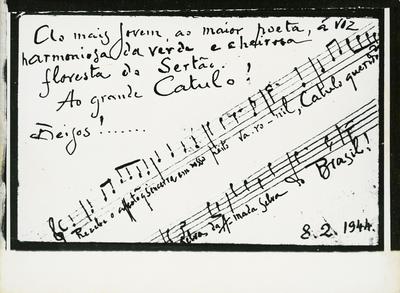 Ao mais jovem, ao maior poeta, á voz
harmoniosa da verde e cheirosa
floresta do Sertão.
Ao grande Catulo!
Recebe o affecto q̃ sincero, em nosso peito va-ro-nil, Catulo querido
Selva, da A-mada Selva do Brasil!
8.2.1944.